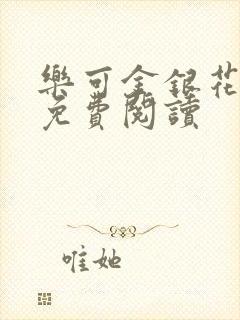 樂可金銀花
免費閱讀
唯她